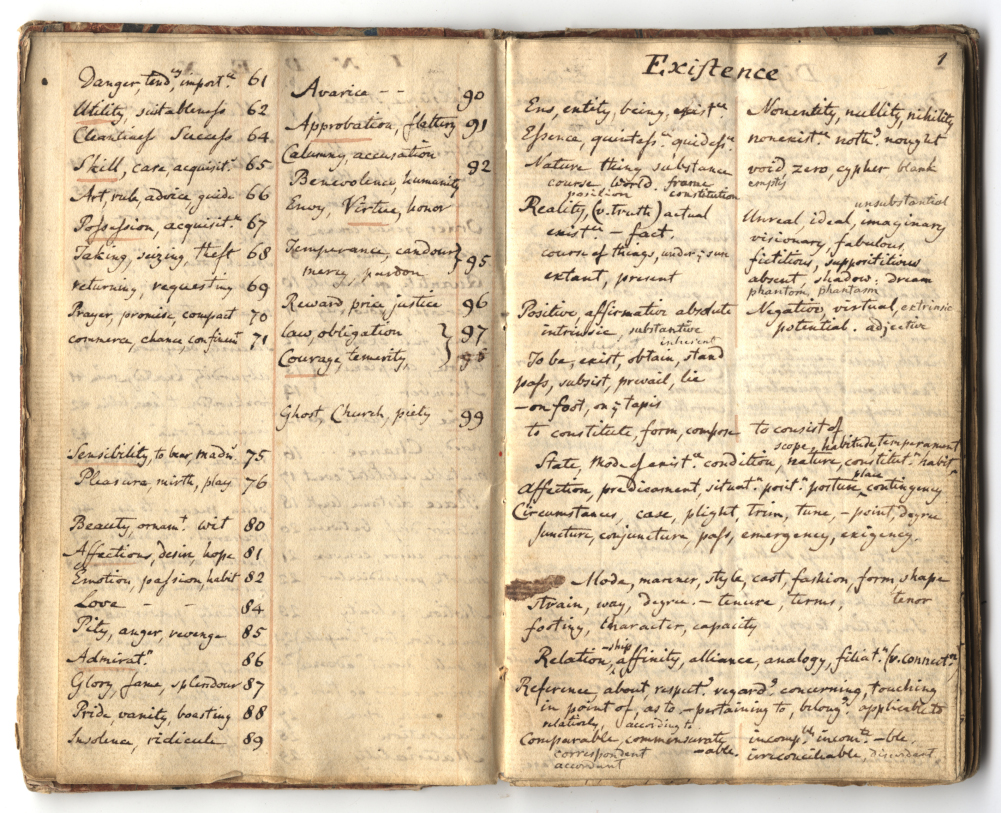 Danger, tend.cy import.ce 61
Utility, suitableness 62
Cleanliness Success 64
Skill, care, acquisit.n 65
Art, rule, advice, guide 66
Possession, acquisit.n 67
Taking, seizing, theft 68
returning, requesting 69
Prayer, promise, compact 70
commerce, chance 71
Sensibility, to bear, 75
Pleasure, mirth, play 76
Beauty, ornam.t wit 80
Affections, desire, hope 81
Emotion, passion, habit 82
Love - - 84
Pity, anger, revenge 85
Admirat.n 86
Glory, fame, splendour 87
Pride, vanity, boasting 88
Insolence, ridicule 89
Avarice - - 90
Approbation, flattery 91
Calumny, accusation
92
Benevolence, humanity
Envy, Virtue, honor
Temperance, candour
} 95
mercy, pardon
Reward, price, justice 96
law, obligation } 97
Courage, temerity, } 98
Ghost Church, piety 99
1
Existence
Ens, entity, being, exist.ce
Essence, quintess.ce quidess.ce
Nature thing substance
course, World. frame
position constitution
Reality, (v. truth) actual
exist.ce - fact.
course of things, under y sun
extant, present
Positive, affirmative absolute
intrinsic, substantive
inherent
To be, exist, obtain, stand
pass, subsist, prevail, lie
- on foot, on y tapis
to constitute, form, compose
Nonentity, nullity, nihility
nonexist.ce noth.g nought
void, zero, cypher blank
empty
unsubstantial
Unreal, ideal, imaginary
visionary, fabulous,
fictitious, supposititious
absent, shadow. dream
phantom, phantasm
Negative, virtual, extrinsic
potential. adjective
to consist of
scope, habitude, temperament
State, Mode of exist.ce condition, nature, constitut.n habit
place
Affection, predicament, situat.n posit.n posture, contingency
Circumstances, case, plight, trim, tune, - point, degree
Juncture, conjuncture, pass, emergency, exigency.
Mode, manner, style, cast, fashion, form, shape
Strain, way, degree. - tenure, terms, tenor
footing, character, capacity
-ship
Relation, affinity, alliance, analogy, filiat.n (v. connect.n)
Reference, about, respect.g regard.g concerning, touching
in point of, as to, - pertaining to, belong.g applicable to
relatively, according to
Comparable, commensurate incomp.ble incom.te -ble,
correspondent -able. irreconcileable, discordant
accordant